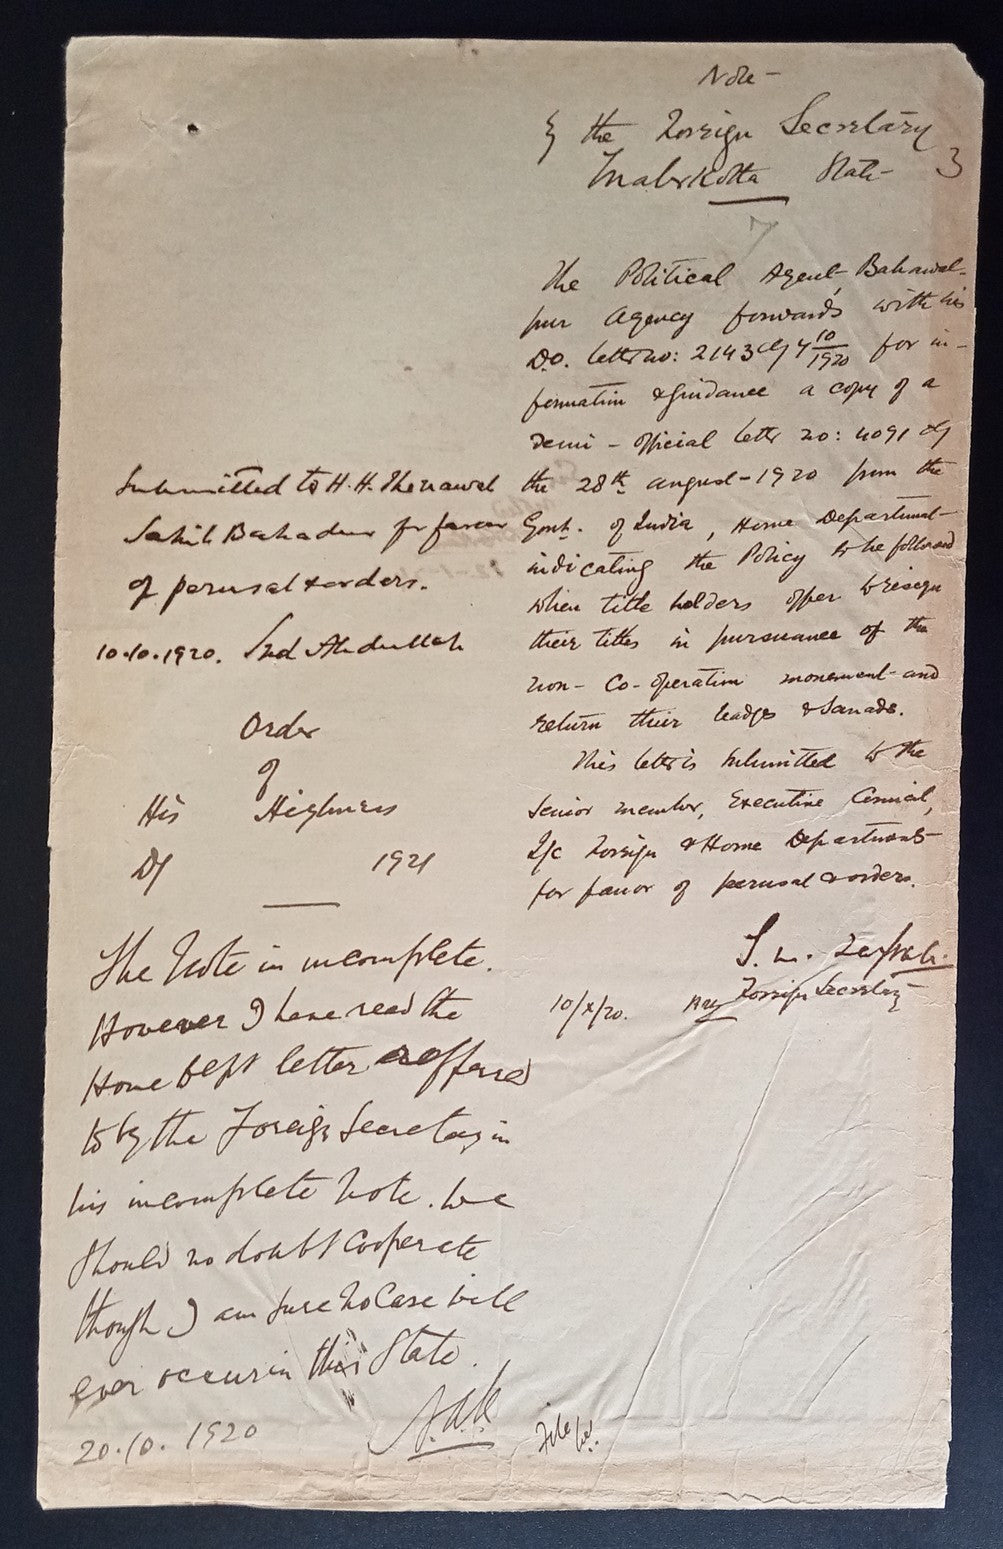 Note -
of the Foreign Secretary
Malerkotla State
3
7
The Political Agent, Bahawal-
pur Agency forwards with his
D.O. letter no: 2143 of 4 10/1920 for in-
formation & guidance a copy of a
Demi-official letter no: 4091 of
the 28th August-1920 from the
Govt. of India, Home Department
indicating the Policy to be followed
when title holders offer to resign
their titles in pursuance of the
non-Co-operation movement and
return their badges & Sanads.
This letter is submitted to the
Senior member, Executive Council,
I/c Foreign & Home Departments
for favor of perusal & orders.
S. M.
Foreign Secretary
10/X/20.
Submitted to H.H. The Nawab
Sahib Bahadur for favour
of perusal & orders.
10.10.1920. Abdullah
Order
of
His Highness
D/ 1921
The Note is incomplete.
However I have read the
Home Dept letter referred
to by the Foreign Secretary in
his incomplete Note. We
should no doubt cooperate
though I am sure no case will
ever occur in this State.
20.10.1920
File